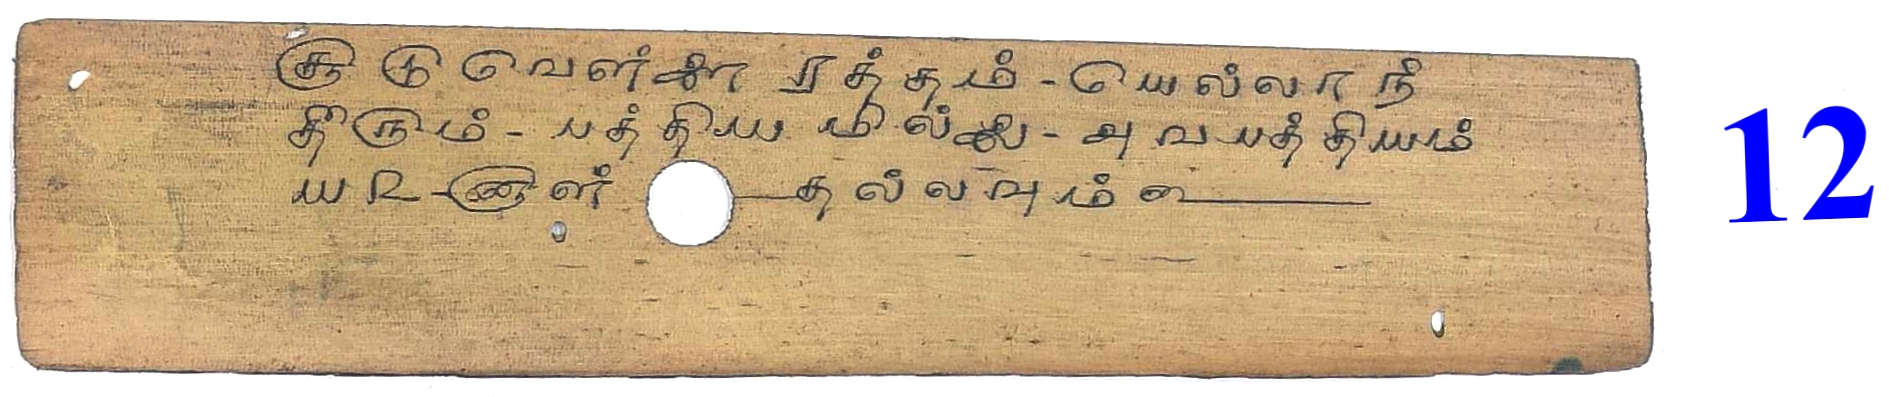 சூடுவெள்ளை ரத்தம் - யெல்லாந்
தீரும் - பத்திய மில்லை - அவபத்தியம்
ய௨ - னாள் தல்லவும்
12